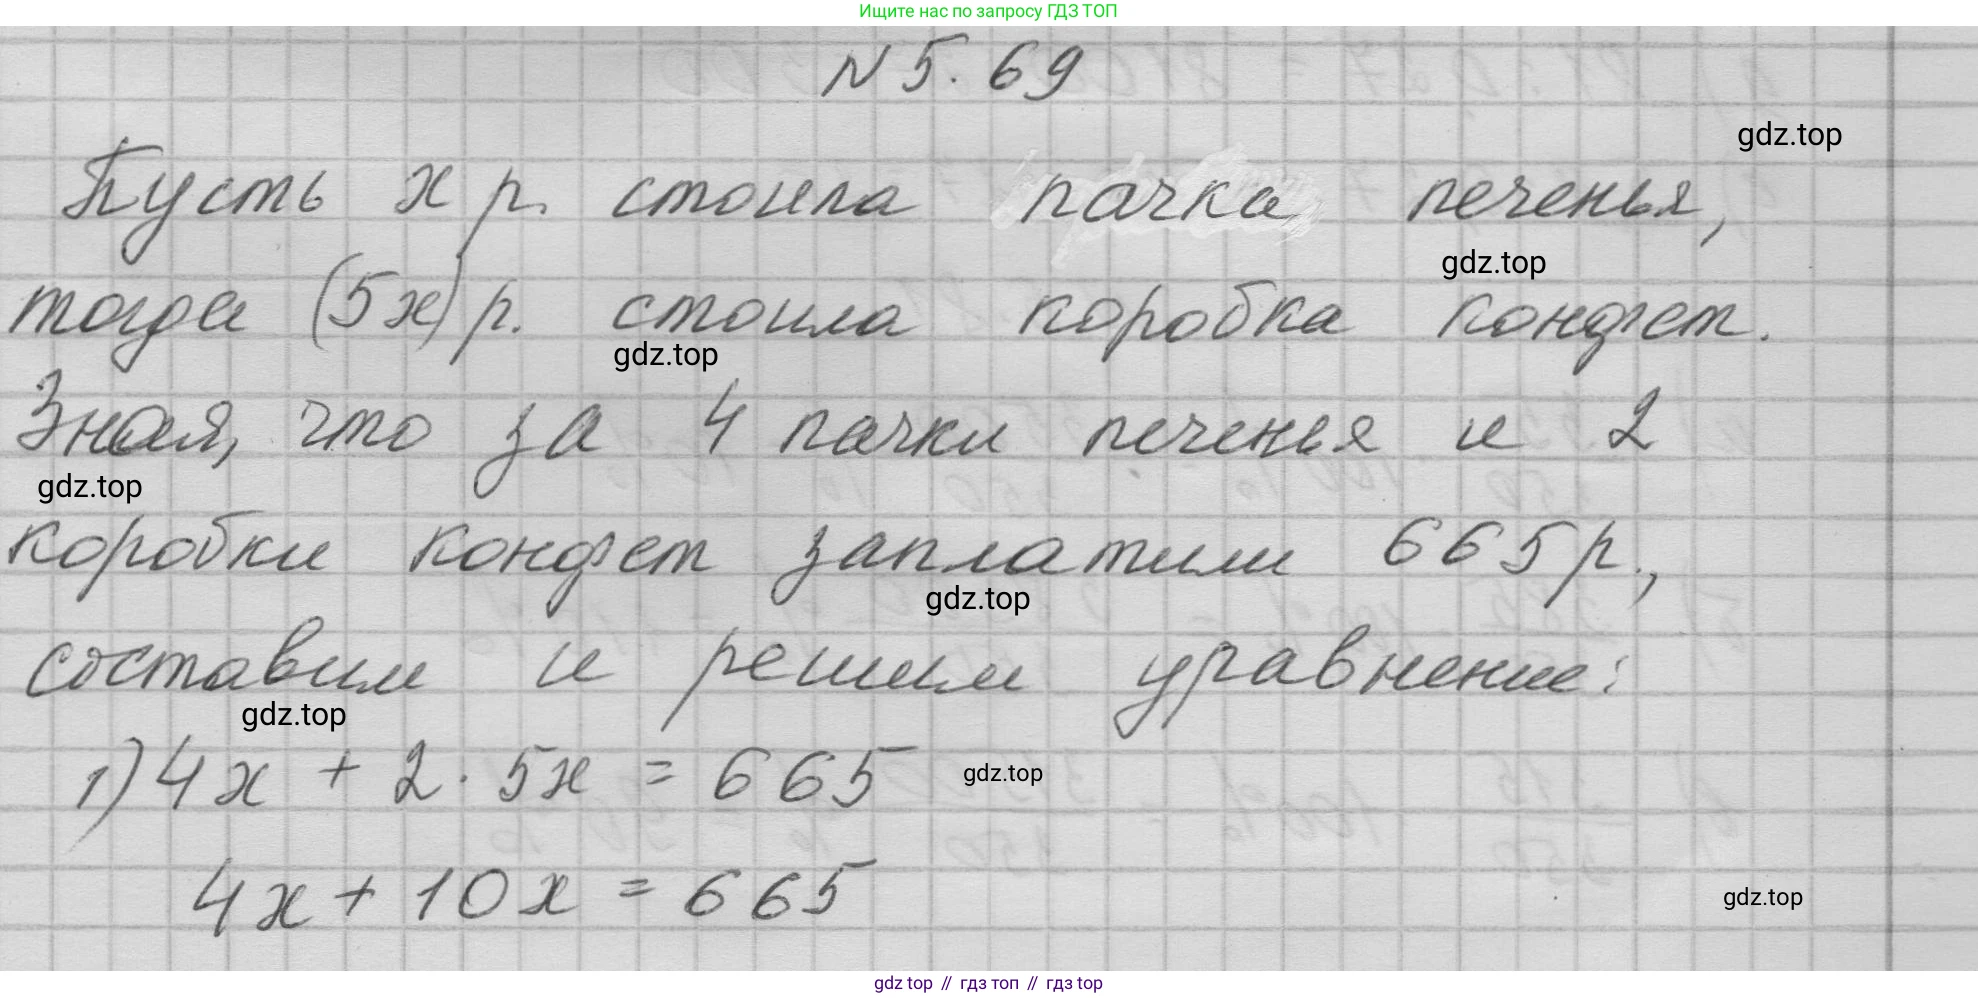 Ищите нас по запросу ГДЗ ТОП
N 5. 69
gdz.top
Пусть x р. стоила пачка печенья,
gdz.top
тогда (5x) р. стоила коробка конфет.
gdz.top
Зная, что за 4 пачки печенья и 2
gdz.top
коробки конфет заплатили 665 р.,
gdz.top
составим и решим уравнение:
gdz.top
1) 4x + 2 · 5x = 665
gdz.top
4x + 10x = 665
gdz.top
gdz top // гдз топ // гдз top